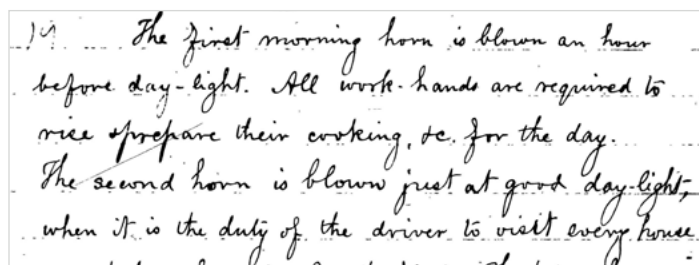 The first morning horn is blown an hour
before day-light. All work-hands are required to
rise & prepare their cooking, &c. for the day.
The second horn is blown just at good day-light,
when it is the duty of the driver to visit every house